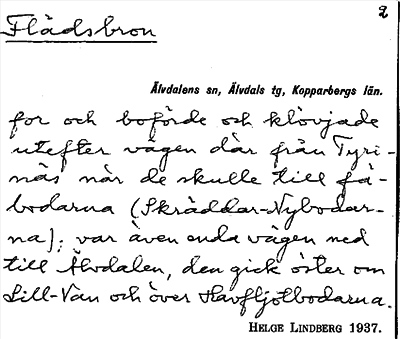 2
Flådsbron
Älvdalens sn, Älvdals tg, Kopparbergs län.
for och boförde och klövjade
utefter vägen där från Tyri-
näs när de skulle till fä-
bodarna (Skräddar-Nybodar-
na); var även enda vägen ned
till Älvdalen, den gick öster om
Lill-Van och över Havfljotbodarna.
HELGE LINDBERG 1937.